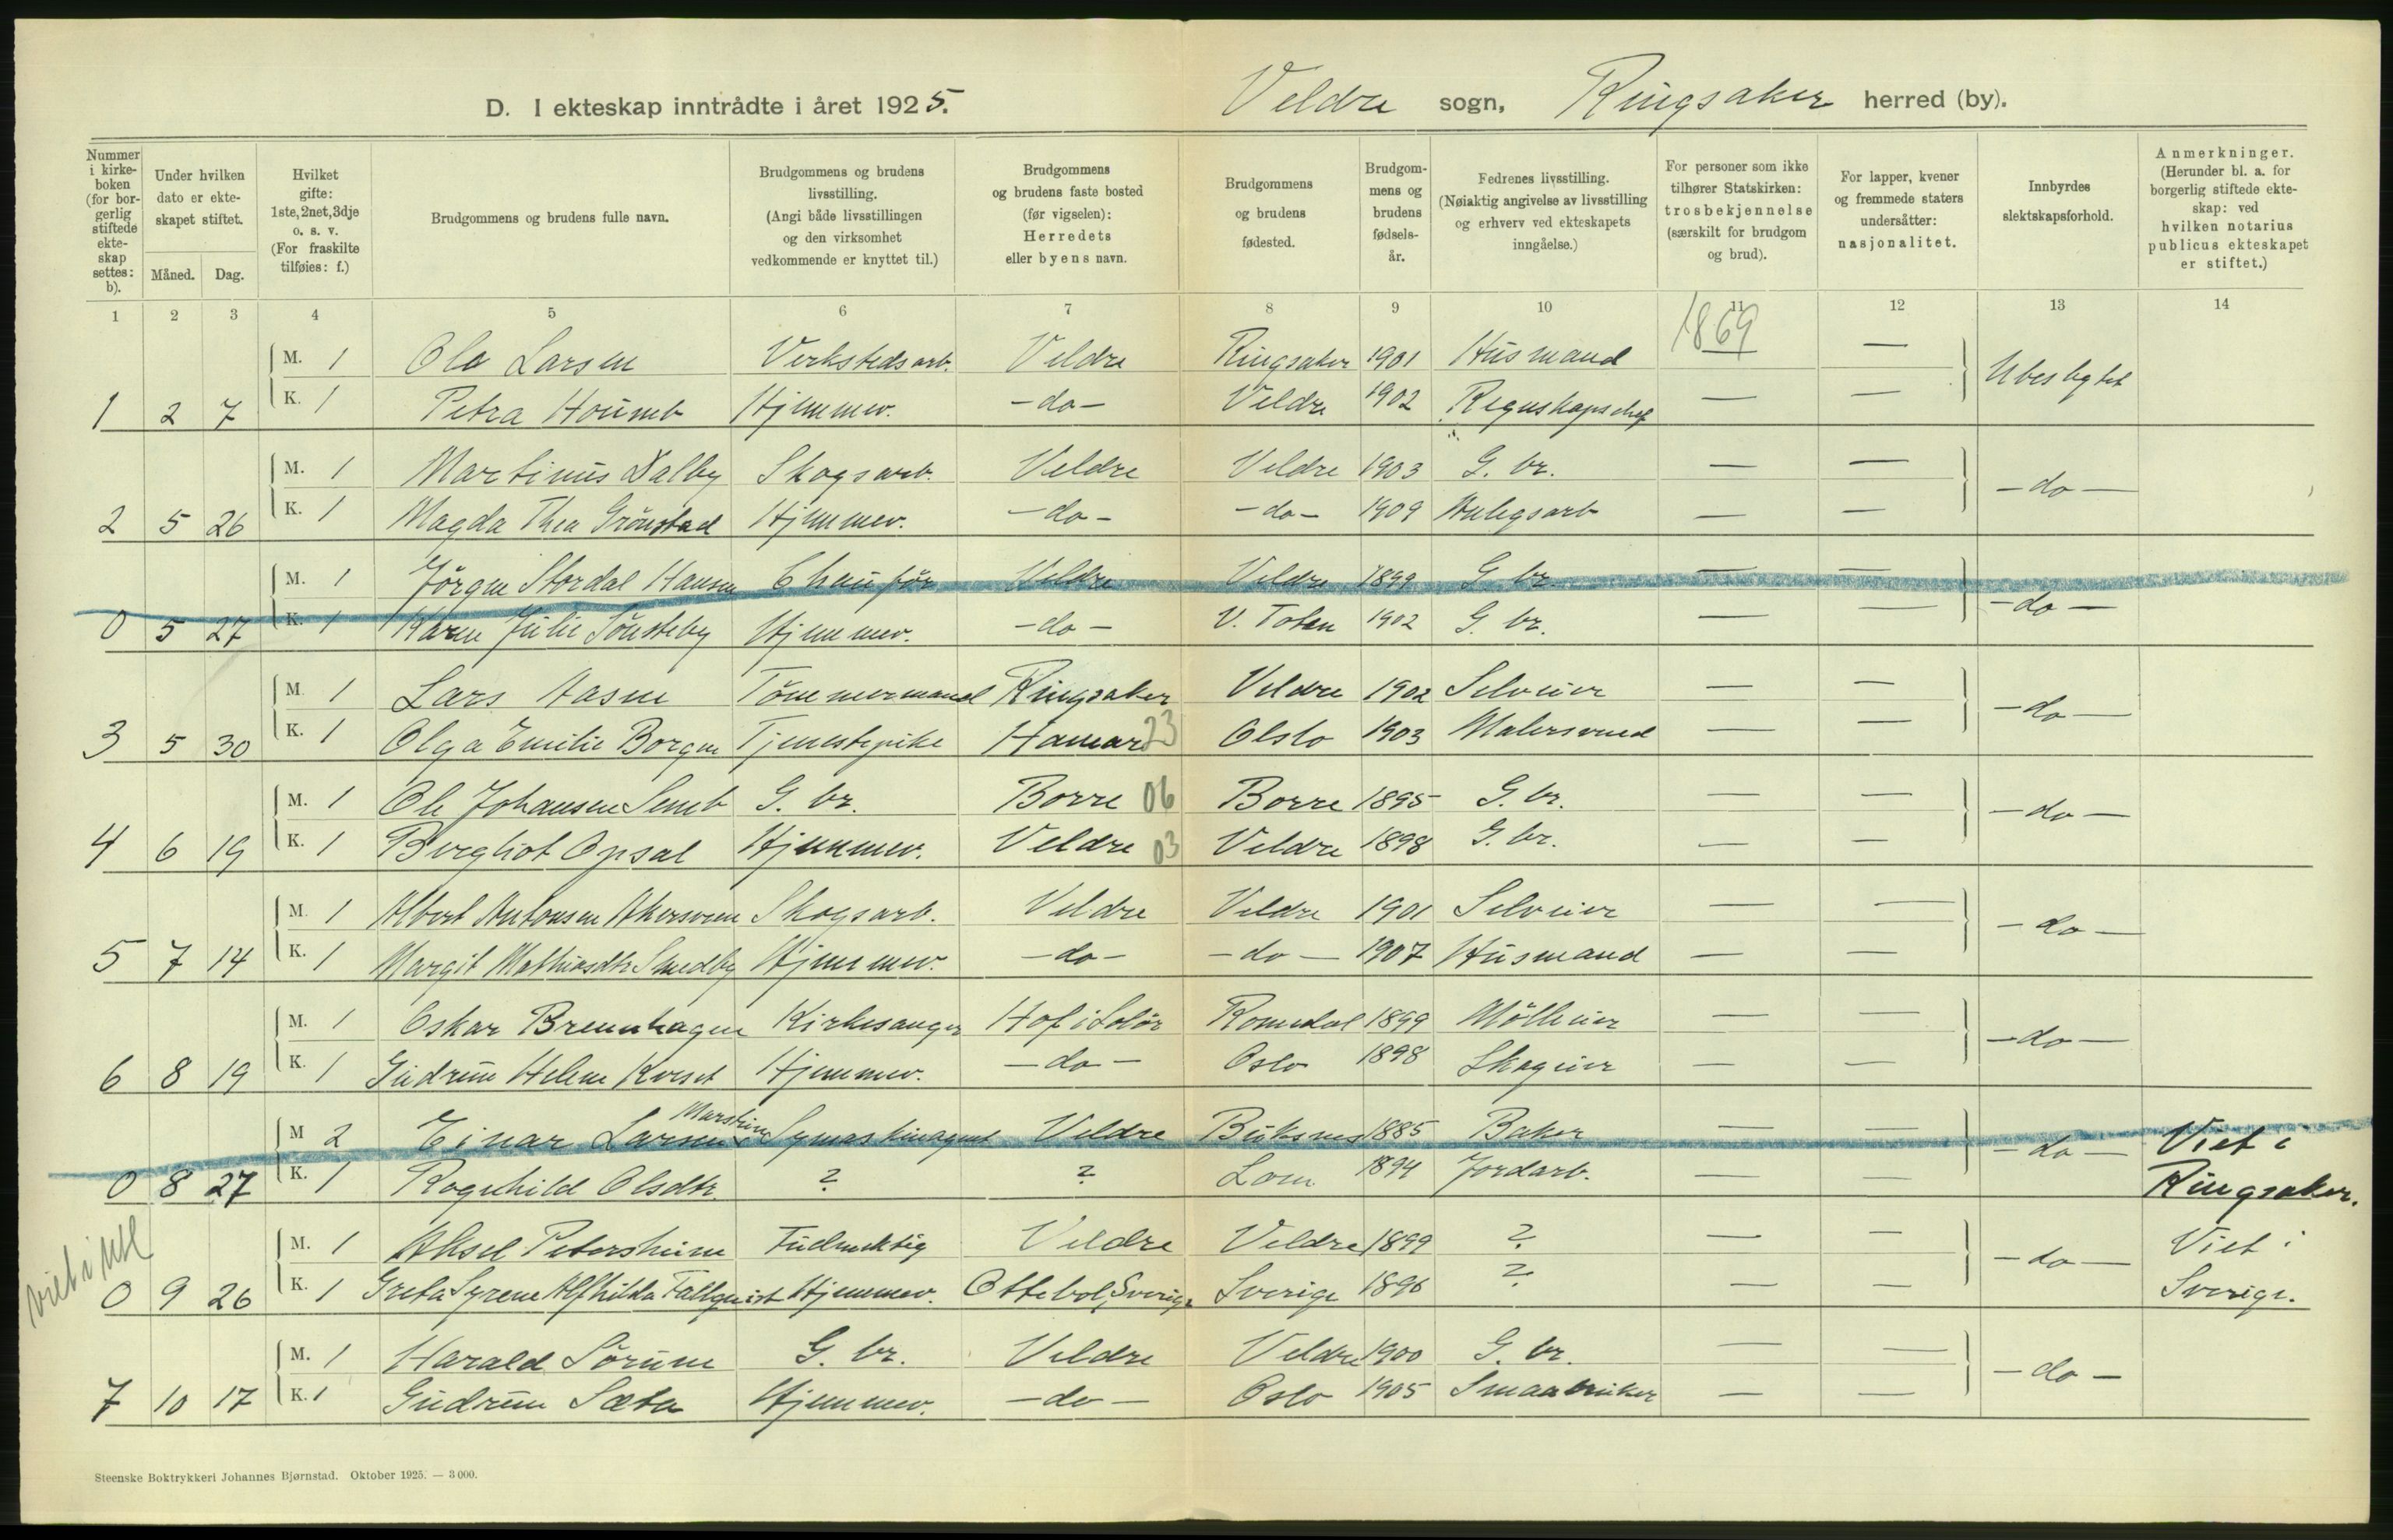 D. I ekteskap inntrådte i året 1925. Veldre sogn, Ringsaker herred (by).
Nummer i kirkeboken (for borgerlig stiftede ekteskap settes: b). Under hvilken dato er ekteskapet stiftet. Måned. Dag. Hvilket gifte: 1ste, 2net, 3dje o. s. v. (For fraskilte tilføies: f.) Brudgommens og brudens fulle navn. Brudgommens og brudens livsstilling. (Angi både livsstillingen og den virksomhet vedkommende er knyttet til.) Brudgommens og brudens faste bosted (før vigselen): Herredets eller byens navn. Brudgommens og brudens fødested. Brudgommens og brudens fødselsår. Fedrenes livsstilling. (Nøiaktig angivelse av livsstilling og erhverv ved ekteskapets inngåelse.) For personer som ikke tilhører Statskirken: trosbekjennelse (særskilt for brudgom og brud). For lapper, kvener og fremmede staters undersåtter: nasjonalitet. Innbyrdes slektskapsforhold. Anmerkninger. (Herunder bl. a. for borgerlig stiftede ekteskap: ved hvilken notarius publicus ekteskapet er stiftet.)
1 2 3 4 5 6 7 8 9 10 11 12 13 14
1869
M. 1 Ola Larsen Verkstedsarb. Veldre Ringsaker 1901 Husmand — Ubeslgtet
1 2 7 K. 1 Petra Houmb Hjemmev. - do - Veldre 1902 Regnskapschef — —
M. 1 Martinus Dalby Skogsarb. Veldre Veldre 1903 G. br. — — - do -
2 5 26 K. 1 Magda Thea Grönstad Hjemmev. - do - - do - 1909 Anlegsarb — —
M. 1 Jörgen Stordal Hansen Chauför Veldre Veldre 1899 G. br. — — - do -
0 5 27 K. 1 Karen Julie Sönsteby Hjemmev. - do - V. Toten 1902 G. br. — —
M 1 Lars Aasen Tömmermand Ringsaker Veldre 1902 Selveier — — - do -
3 5 30 K. 1 Olga Emilie Borgen Tjenestepike Hamar 23 Olslo 1903 Malersvend — —
M. 1 Ole Johansen Semb G. br. Borre 06 Borre 1895 G. br. — — - do -
4 6 19 K. 1 Bergliot Opsal Hjemmev. Veldre 03 Veldre 1898 G. br. — —
M. 1 Albert Antonsen Skogsarb. Veldre Veldre 1901 Selveier — — - do -
5 7 14 K. 1 Margit Mathiasdtr Smedby Hjemmev. - do - - do - 1907 Husmand — —
M. 1 Oskar Brennhagen Kirkesanger Hof i Solör Romedal 1899 Mölleeier — — - do -
6 8 19 K. 1 Gudrun Helene Hjemmev. - do - Oslo 1898 Skogeier — —
M 2 Einar Larsen Symaskinagent Veldre Buksnes 1885 Baker — — - do - Viet i
0 8 27 K. 1 Ragnhild Olsdtr. ? ? Lom 1894 Jordarb. — — Ringsaker.
viet i utl
M. 1 Aksel Petersheim Veldre Veldre 1899 ? — — - do - Viet i
0 9 26 K. 1 Greta Syrene Alfhilda Fallquist Hjemmev. Ottebol, Sverige Sverige 1896 ? — — Sverige.
M. 1 Harald Sörum G. br. Veldre Veldre 1900 G. br. — — - do -
7 10 17 K. 1 Gudrun Sæta Hjemmev. - do - Oslo 1905 Smaabruker — —
Steenske Boktrykkeri Johannes Bjørnstad. Oktober 1925. — 3 000.